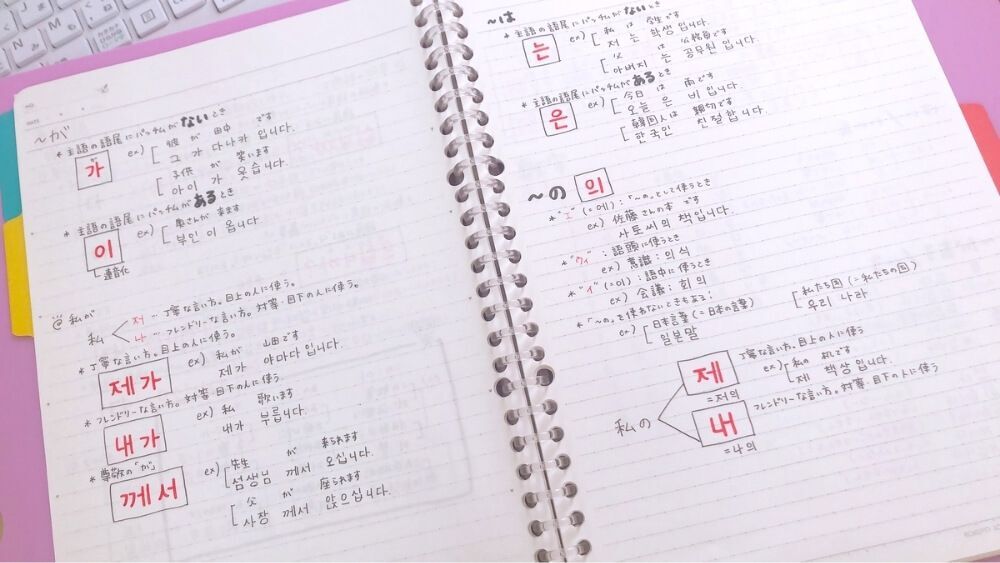 ~が
* 主語の語尾にパッチムがないとき
가 ex) 彼 が 田中 です
그 가 다나카 입니다.
子供 が 笑います
아이 가 웃습니다.
* 主語の語尾にパッチムがあるとき
이 ex) 奥さんが 来ます
부인 이 옵니다.
連音化
@ 私が
私
저 … 丁寧な言い方。目上の人に使う。
나 … フレンドリーな言い方。対等・目下の人に使う。
* 丁寧な言い方。目上の人に使う。
제가 ex) 私が 山田です
제가 야마다 입니다.
* フレンドリーな言い方。対等・目下の人に使う。
내가 ex) 私 歌います
내가 부릅니다.
* 尊敬の「が」
께서 ex) 先生 が 来られます
섬생님 께서 오십니다.
父 が 座られます
사장 께서 앉으십니다.
~は
* 主語の語尾にパッチムがないとき
는 ex) 私 は 学生です
저 는 학생 입니다.
父 は 公務員です
아버지 는 공무원 입니다.
* 主語の語尾にパッチムがあるとき
은 ex) 今日 は 雨です
오늘 은 비 입니다.
韓国人は 親切です
한국인 친절합니다.
~の 의
* "エ" (=에)：「~の」として使うとき
ex) 佐藤さんの本 です
사토씨의 책입니다.
* "ウィ"：語頭に使うとき
ex) 意識：의식
* "イ" (=이)：語中に使うとき
ex) 会議：회의
* 「~の」を使わないときもある：
ex) 日本言葉 (=日本の言葉)
일본말
私たち国 (=私たちの国)
우리 나라
私の
제 丁寧な言い方。目上の人に使う
ex) 私の 机です
제 책상입니다.
=저의
내 フレンドリーな言い方。対等・目下の人に使う
=나의